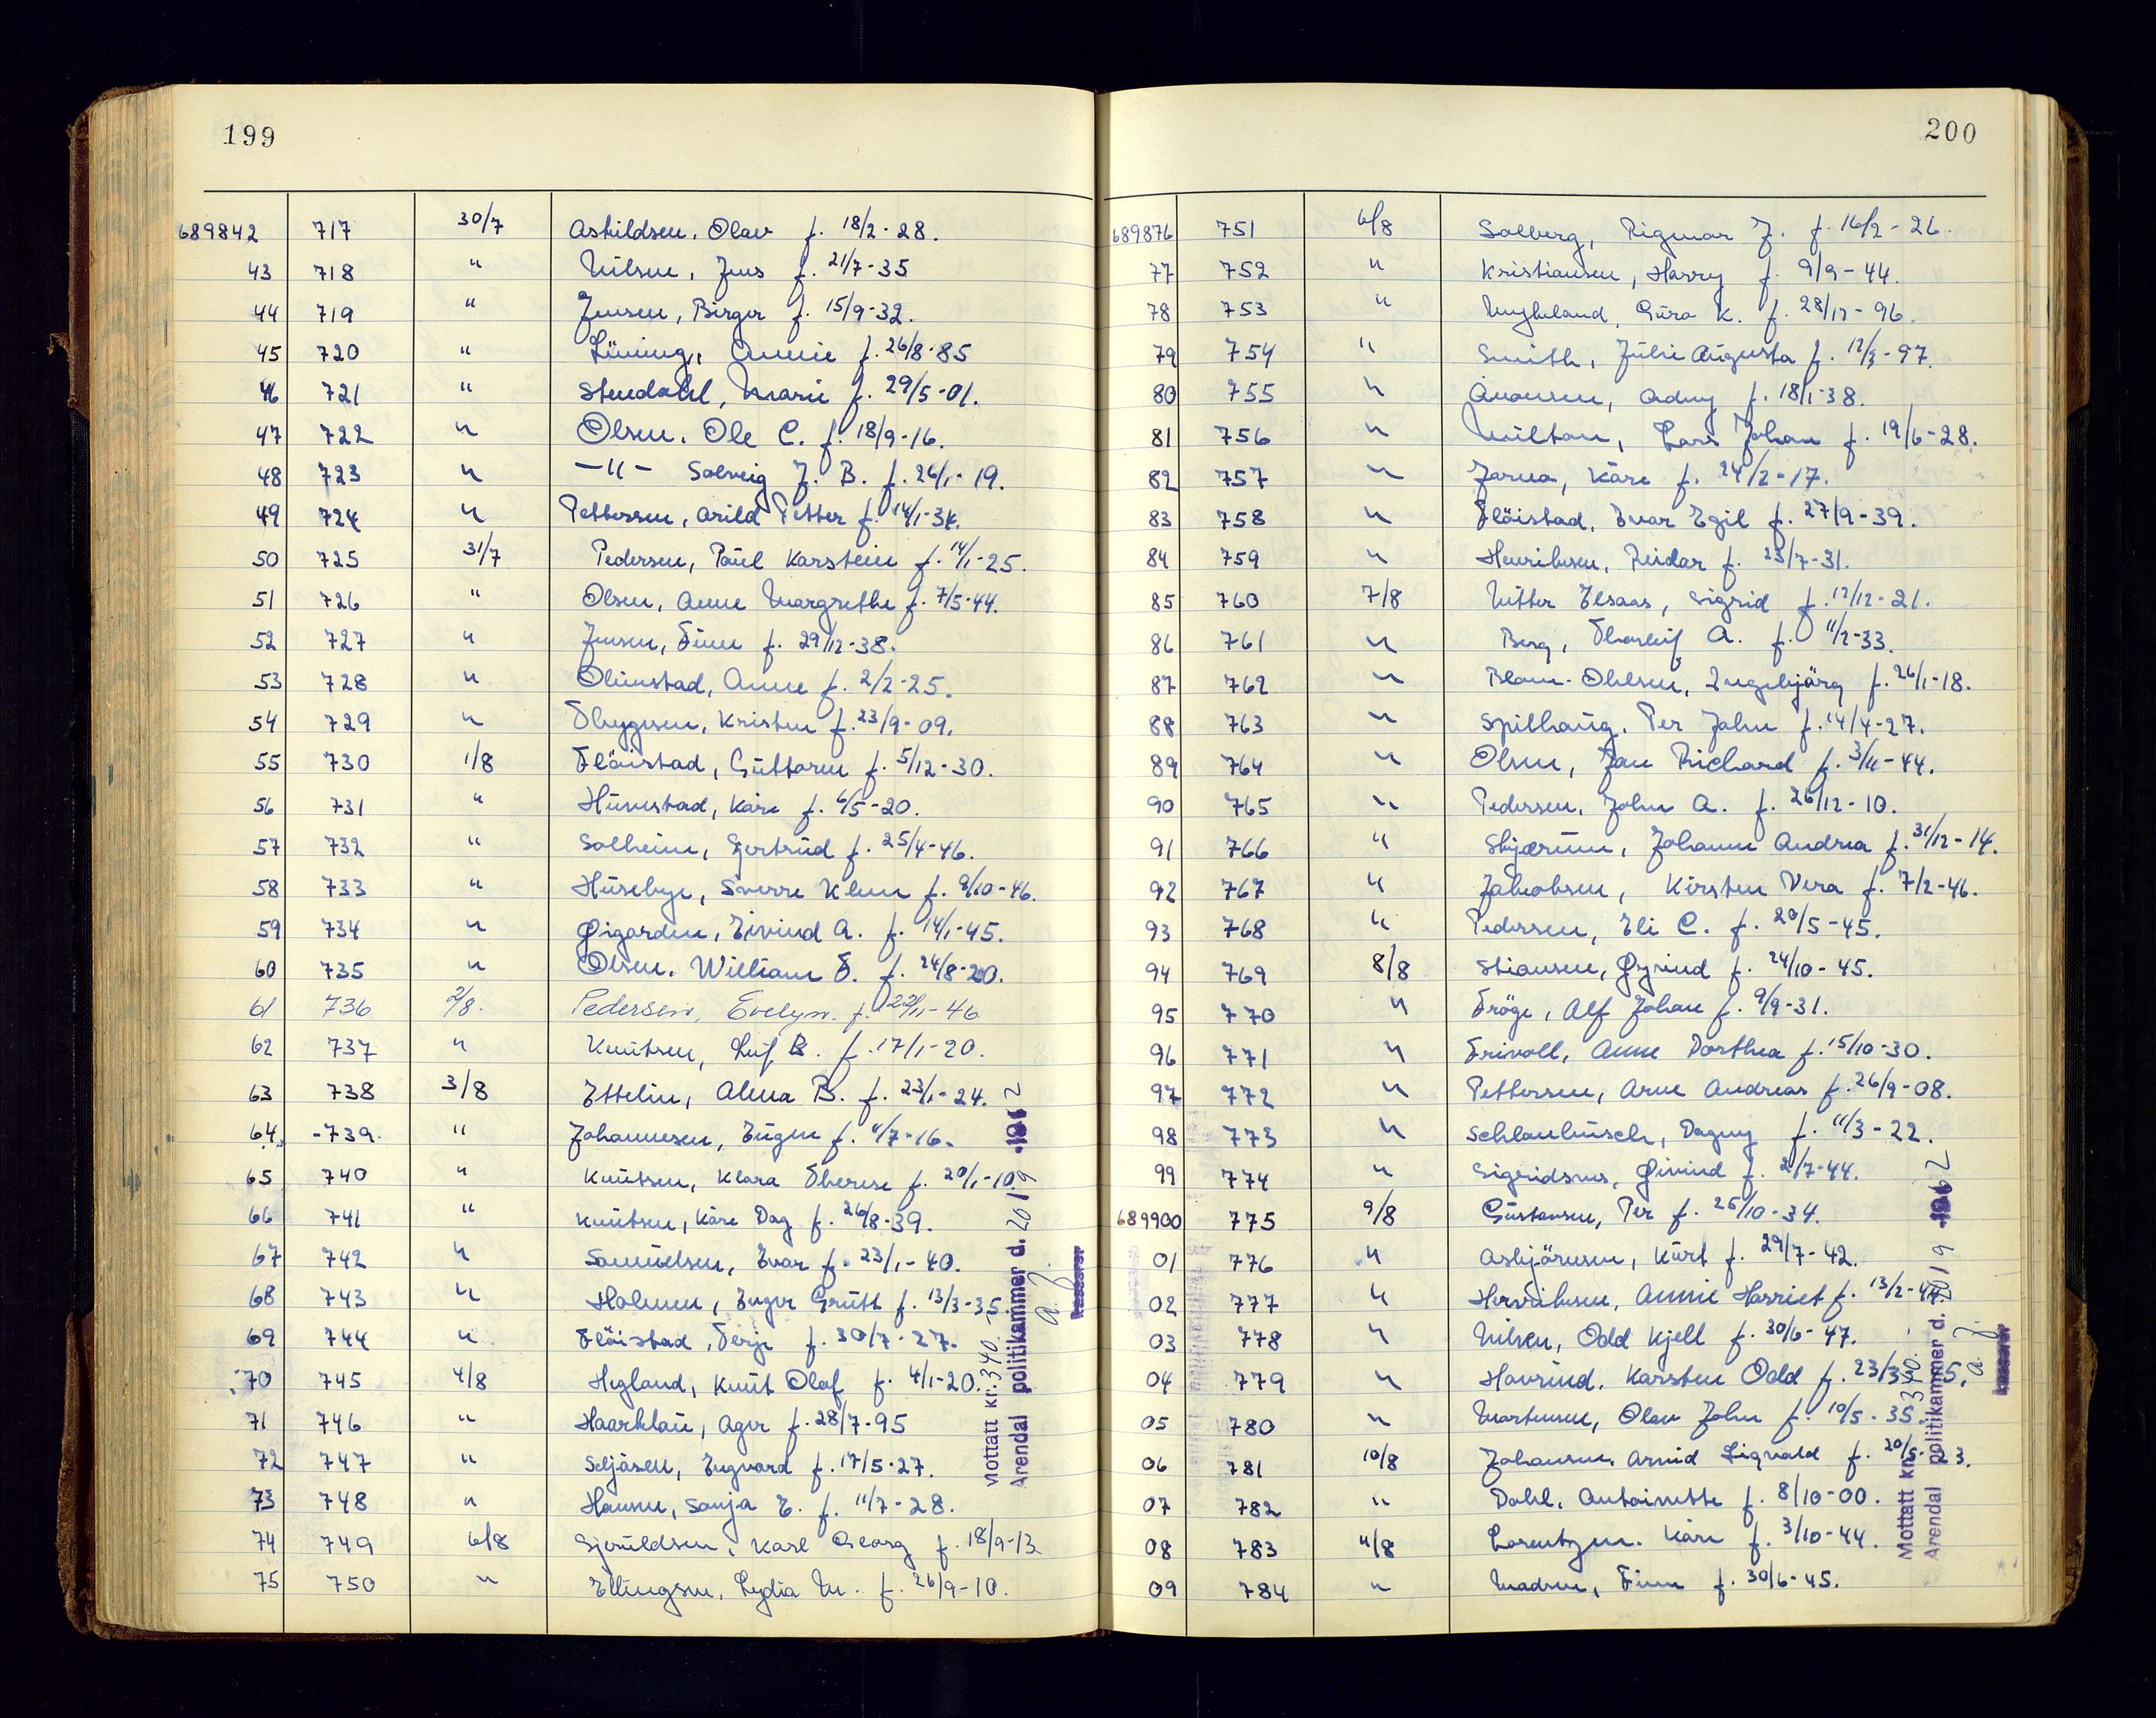 199
689842 717 30/7 Askildsen, Olav f. 18/2-28.
43 718 " Nilsen, Jens f. 21/7-35
44 719 " Jensen, Birger f. 15/9-32.
45 720 " Lüning, Annie f. 26/8-85
46 721 " Stendahl, Marie f. 29/5-01.
47 722 " Olsen, Ole C. f. 18/9-16.
48 723 " -"- Solveig J. B. f. 26/1-19.
49 724 " Pettersen, Arild Petter f. 14/1-34.
50 725 31/7 Pedersen, Paul Karstein f. 14/1-25.
51 726 " Olsen, Anne Margrethe f. 7/5-44.
52 727 " Jensen, Finn f. 29/12-38.
53 728 " Olimstad, Anne f. 2/2-25.
54 729 " Thygesen, Kristen f. 23/9-09.
55 730 1/8 Fløistad, Guttorm f. 5/12-30.
56 731 " Hunnestad, Kåre f. 6/5-20.
57 732 " Solheim, Gertrud f. 25/4-46.
58 733 " Husebye, Sverre Klem f. 9/10-46.
59 734 " Øigarden, Eivind A. f. 14/1-45.
60 735 " Olsen, William F. f. 24/8-20.
61 736 2/8. Pedersen, Evelyn. f. 22/11-46
62 737 " Knutsen, Leif B. f. 17/1-20.
63 738 3/8 Ettelin, Alma B. f. 23/1-24.
64 -739. " Johannesen, Eugen f. 11/7-16.
65 740 " Knutsen, Klara Therese f. 20/1-10.
66 741 " Knutsen, Kåre Dag f. 26/8-39.
67 742 " Samuelsen, Ivar f. 23/1-40.
68 743 " Holmen, Inger Gruth f. 13/3-35.
69 744 " Fløistad, Terje f. 30/7-27.
70 745 4/8 Hegland, Knut Olaf f. 4/1-20.
71 746 " Haarklau, Ager f. 28/7-95
72 747 " Seljåsen, Ingvard f. 17/5-27.
73 748 " Hansen, Sonja E. f. 11/7-28.
74 749 6/8 Gjeruldsen, Karl Georg f. 18/9-13.
75 750 " Ellingsen, Lydia M. f. 26/9-10.
Mottatt kr. 340.
Arendal politikammer d. 20/9 1962
a. J.
kasserer
200
689876 751 6/8 Solberg, Rigmor J. f. 16/2-26.
77 752 " Kristiansen, Harry f. 9/9-44.
78 753 " Mykland, Guro K. f. 28/12-96.
79 754 " Smith, Julie Augusta f. 12/3-97.
80 755 " Aanonsen, Odny f. 18/1-38.
81 756 " Multau, Lars Johan f. 19/6-28.
82 757 " Jarna, Kåre f. 24/2-17.
83 758 " Fløistad, Ivar Egil f. 27/9-39.
84 759 " Henriksen, Reidar f. 23/7-31.
85 760 7/8 Nitter Elsaas, Sigrid f. 12/12-21.
86 761 " Berg, Thorleif A. f. 11/2-33.
87 762 " Blom-Ohlsen, Ingebjørg f. 26/1-18.
88 763 " Spilhaug, Per John f. 14/4-27.
89 764 " Olsen, Jan Richard f. 3/11-44.
90 765 " Pedersen, John A. f. 26/12-10.
91 766 " Skjærum, Johanne Andrea f. 31/12-14.
92 767 " Jakobsen, Kirsten Vera f. 7/2-46.
93 768 " Pedersen, Eli C. f. 20/5-45.
94 769 8/8 Stiansen, Øyvind f. 24/10-45.
95 770 " Frøge, Alf Johan f. 9/9-31.
96 771 " Frivoll, Anne Dorthea f. 15/10-30.
97 772 " Pettersen, Arne Andreas f. 26/9-08.
98 773 " Schlanbusch, Dagny f. 11/3-22.
99 774 " Sigridsnes, Øivind f. 2/7-44.
689900 775 9/8 Gustavsen, Per f. 25/10-34.
01 776 " Asbjørnsen, Kurt f. 29/7-42.
02 777 " Henriksen, Annie Harriet f. 13/2-44.
03 778 " Nilsen, Odd Kjell f. 30/6-47.
04 779 " Haurind, Karsten Odd f. 23/3
05 780 " Mortensen, Olav John f. 10/5-35.
06 781 10/8 Johansen, Arvid Sigvald f. 20/5-23.
07 782 " Dahl, Antoinette f. 8/10-00.
08 783 11/8 Lorentzen, Kåre f. 3/10-44.
09 784 " Madsen, Finn f. 30/6-45.
Mottatt kr. 340.
Arendal politikammer d. 20/9 1962
a. J.
kasserer